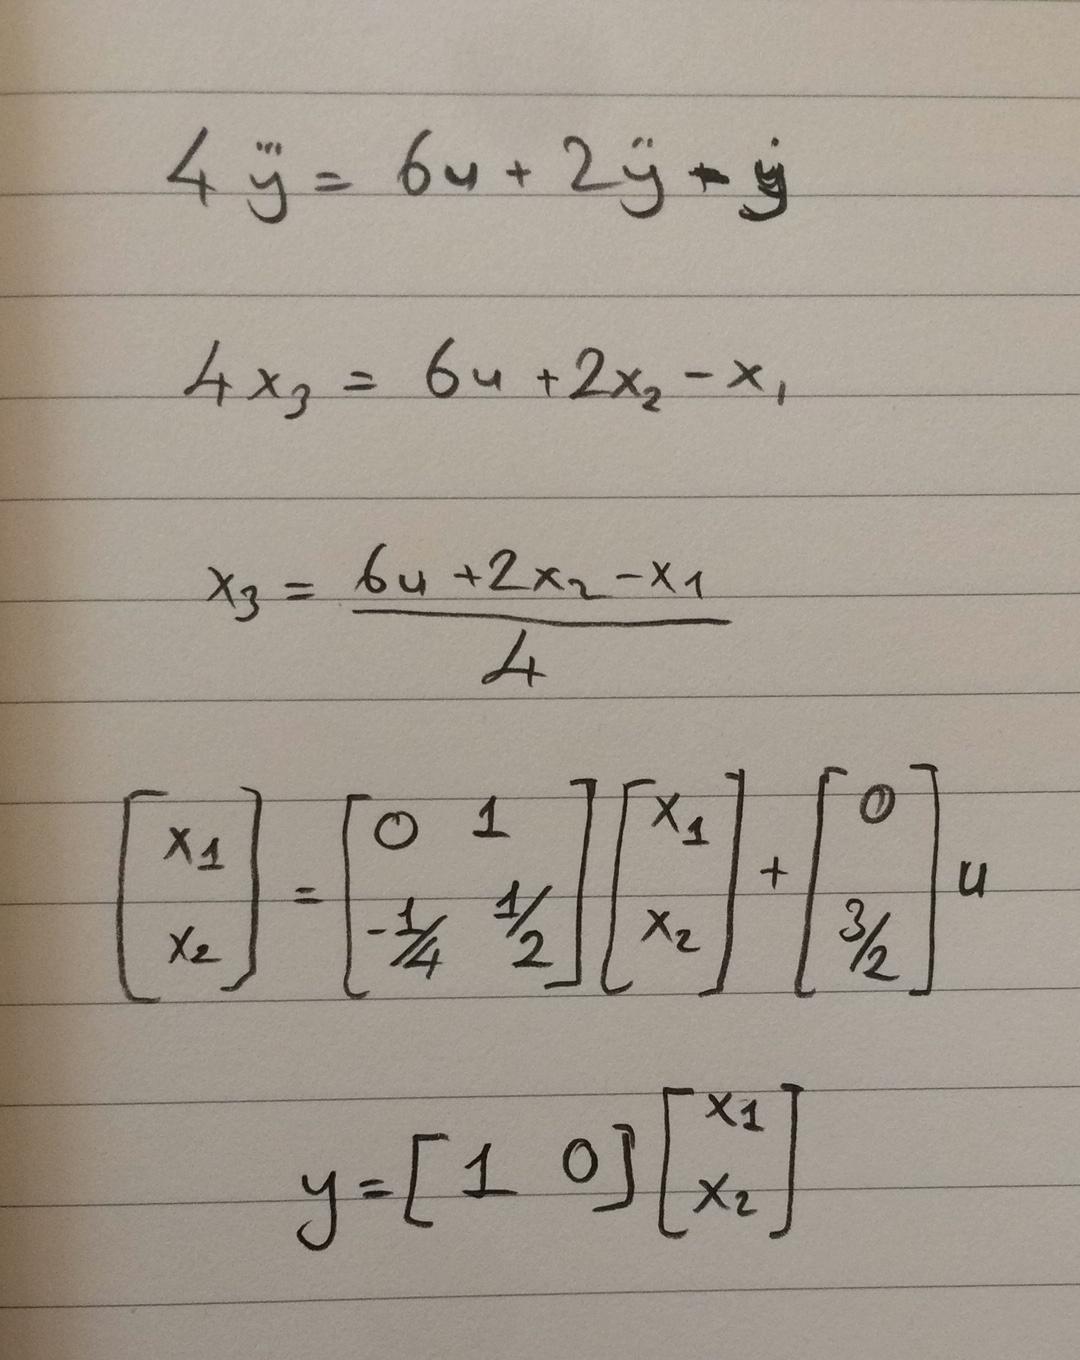 4 y⃛ = 6u + 2ÿ - ẏ
4x₃ = 6u + 2x₂ - x₁
x₃ = (6u + 2x₂ - x₁) / 4
[x₁; x₂] = [0 1; -1/4 1/2] [x₁; x₂] + [0; 3/2] u
y = [1 0] [x₁; x₂]